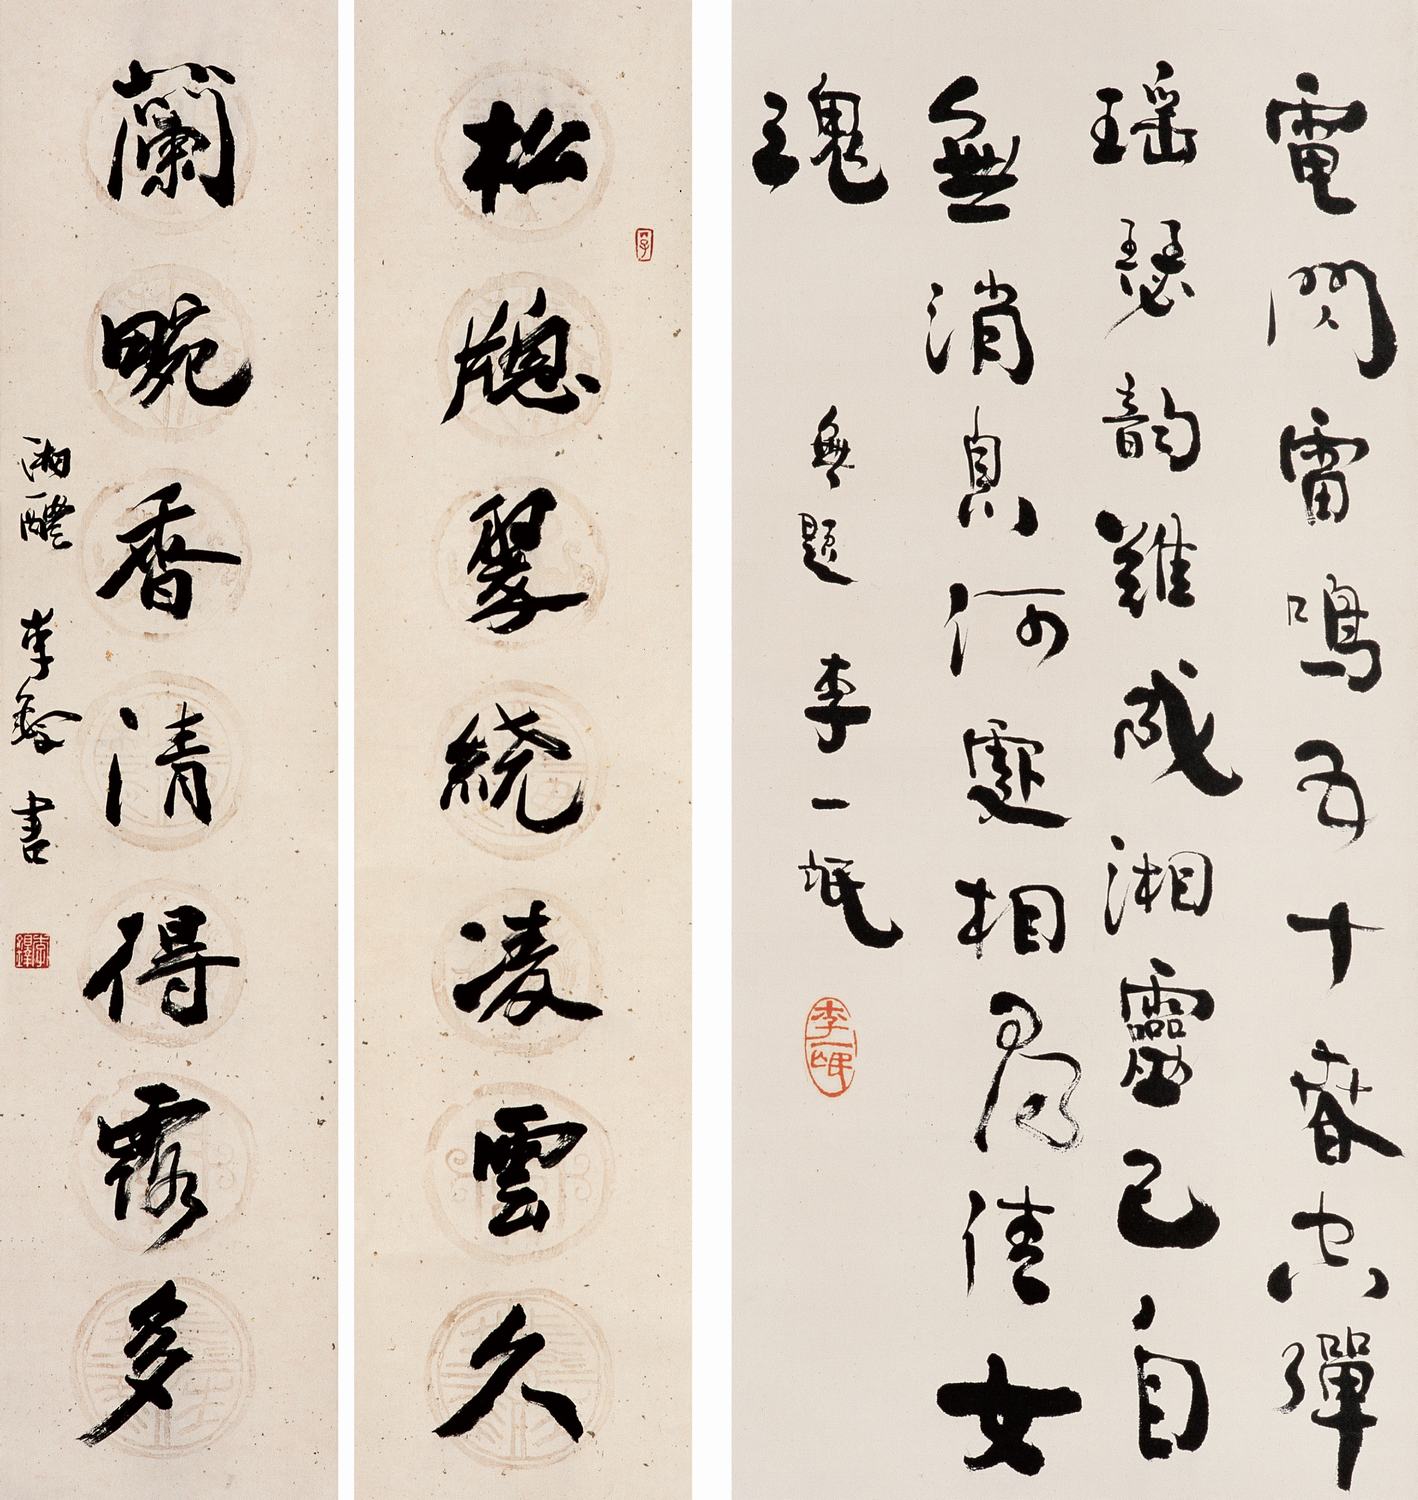 電閃雷鳴五十春空彈
瑶瑟韵難成湘靈已自
無消息何處相尋倩女
魂
無題 李一氓
李一氓
松牕翠繞凌雲久
蘭畹香清得露多
湘醴 李鐸 書
李鐸